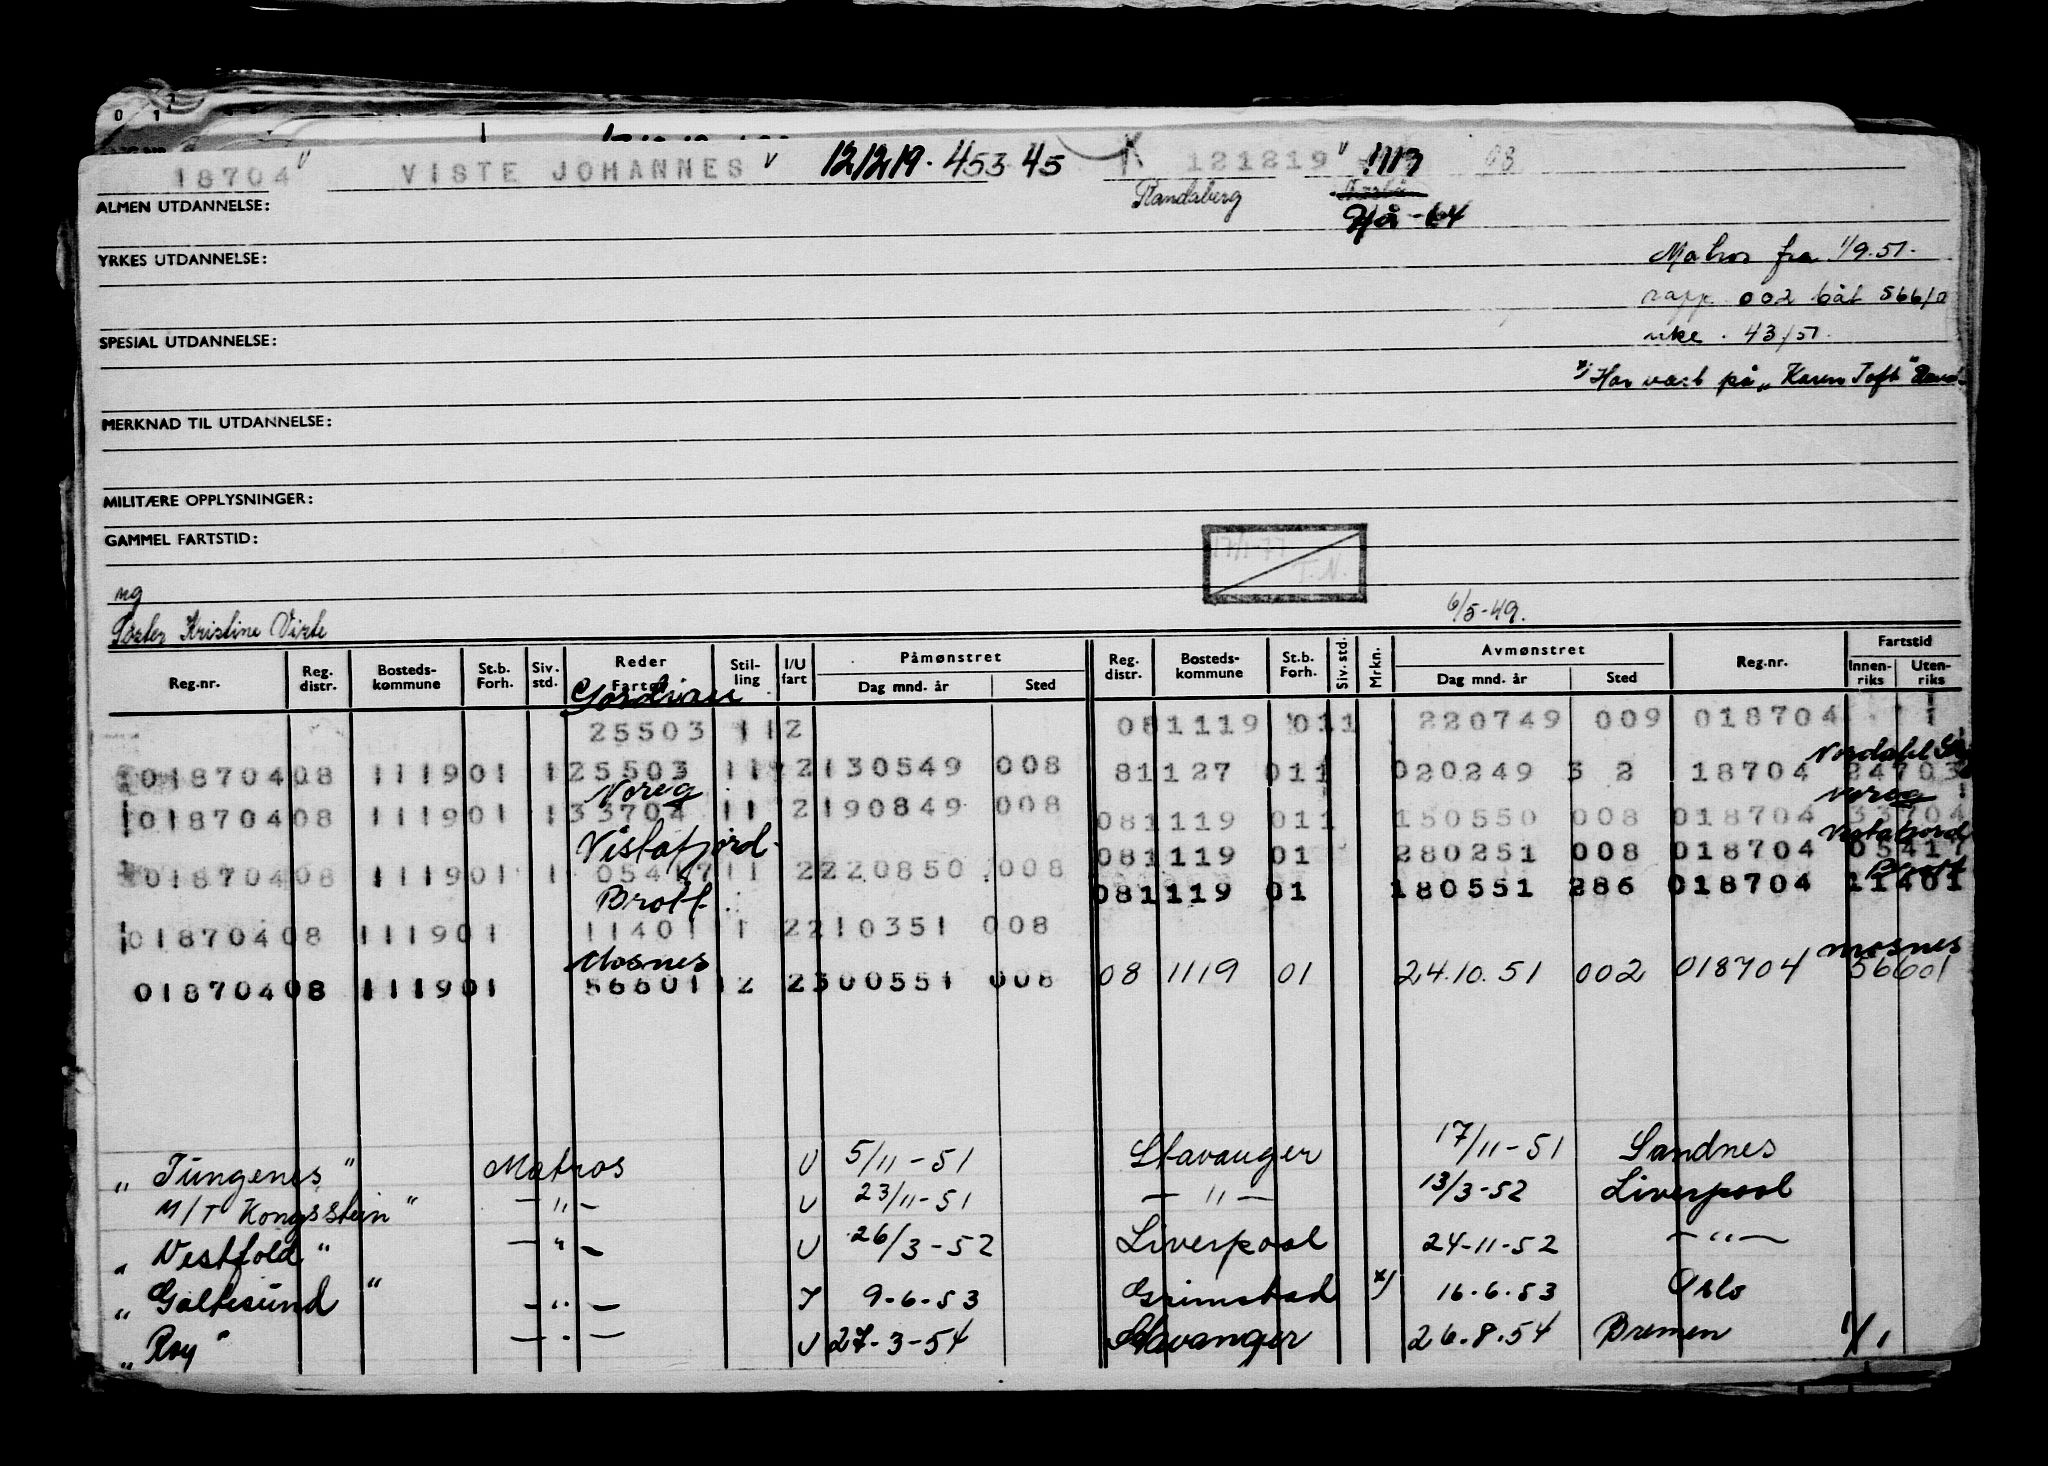 0 1
18704 VISTE JOHANNES 121219.45345 121219 1113 08
ALMEN UTDANNELSE: Randaberg
Hå - 64
YRKES UTDANNELSE: Matros fra 1/9.51.
rapp. 002 båt 566/0
SPESIAL UTDANNELSE: uke . 43/51.
x) Har vært på „Karen Toft"
MERKNAD TIL UTDANNELSE:
MILITÆRE OPPLYSNINGER:
GAMMEL FARTSTID:
17/1-77
T.N.
ug
Søster Kristine Viste 6/5-49.
Reg.nr. Reg. distr. Bosteds-kommune St.b. Forh. Siv. std. Reder Fartøy Stil-ling I/U fart Påmønstret Dag mnd. år Sted Reg. distr. Bosteds-kommune St.b. Forh. Siv. std. Mrkn. Avmønstret Dag mnd. år Sted Reg.nr. Fartstid Innen-riks Uten-riks
25503 112 081119 011 220749 009 018704
01870408 111901 125503 11 2130549 008 81127 011 020249 3 2 18704 24703
Noreg Noreg
01870408 111901 133704 11 2190849 008 081119 011 150550 008 018704 33704
Vistafjord Vistafjord
01870408 111901 1 05417 11 2220850 008 081119 01 280251 008 018704 05417
Brott Brott
01870408 111901 11401 1 2210351 008 081119 01 180551 286 018704 11401
Mosnes Mosnes
01870408 111901 56601 12 2300551 008 08 1119 01 24.10.51 002 018704 56601
„Tungenes" Matros U 5/11-51 Stavanger 17/11-51 Sandnes
M/T Kongsstein" — " — U 23/11-51 — " — 13/3-52 Liverpool
„Vestfold" — " — U 26/3-52 Liverpool 24-11-52 — " —
„Galtesund" — " — I 9-6-53 Grimstad x) 16.6.53 Oslo
„Roy" — " — U 27-3-54 Stavanger 26.8.54 Bremen